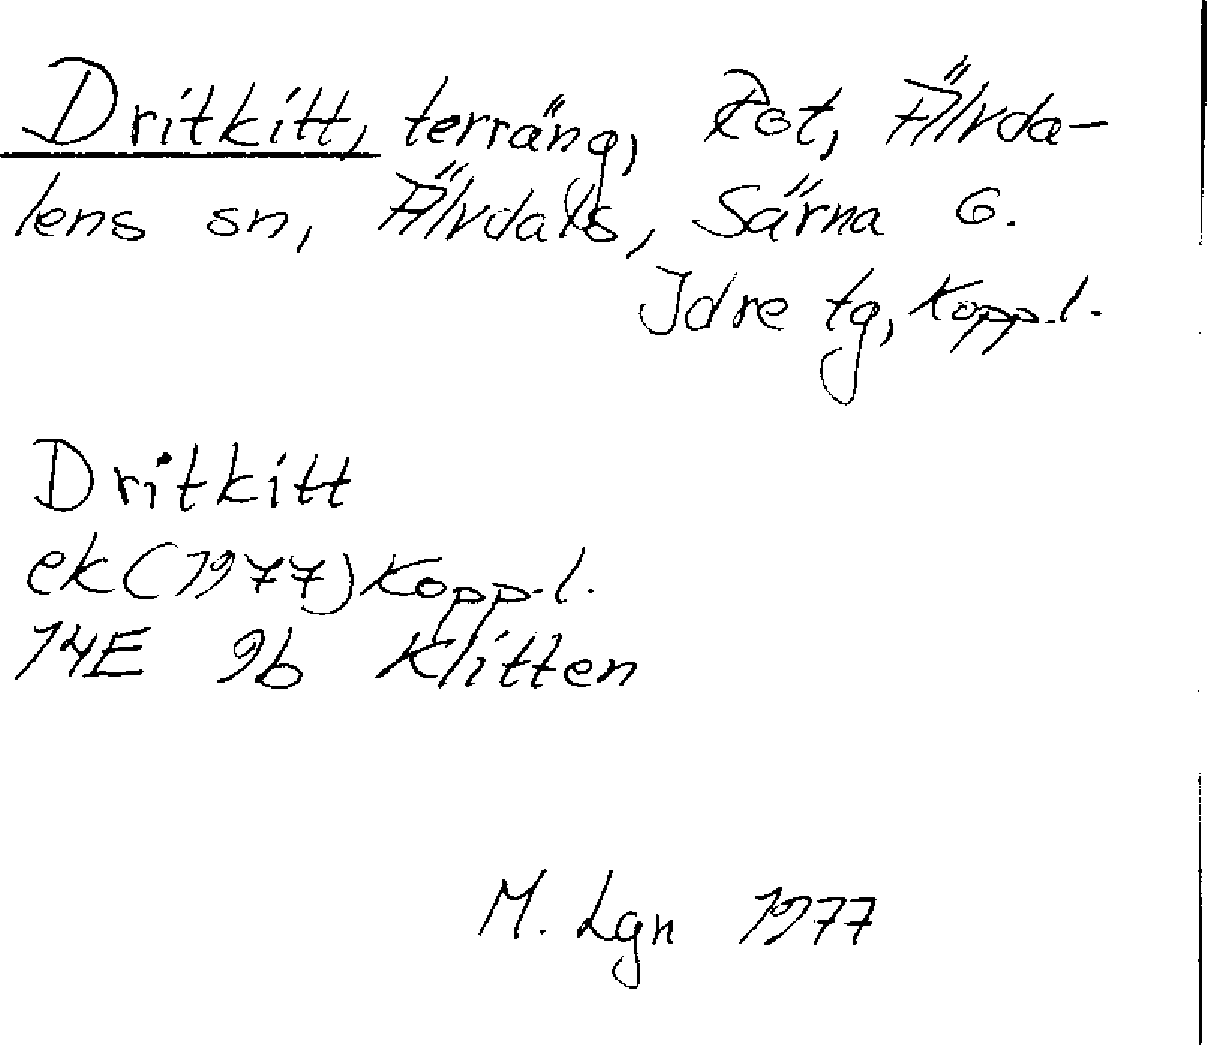 Dritkitt, terräng, Rot, Älvda-
lens sn, Älvdals, Särna o.
Idre tg, Kopp.l.
Dritkitt
ek(1977)Kopp.l.
14E 9b Klitten
M. Lgn 1977